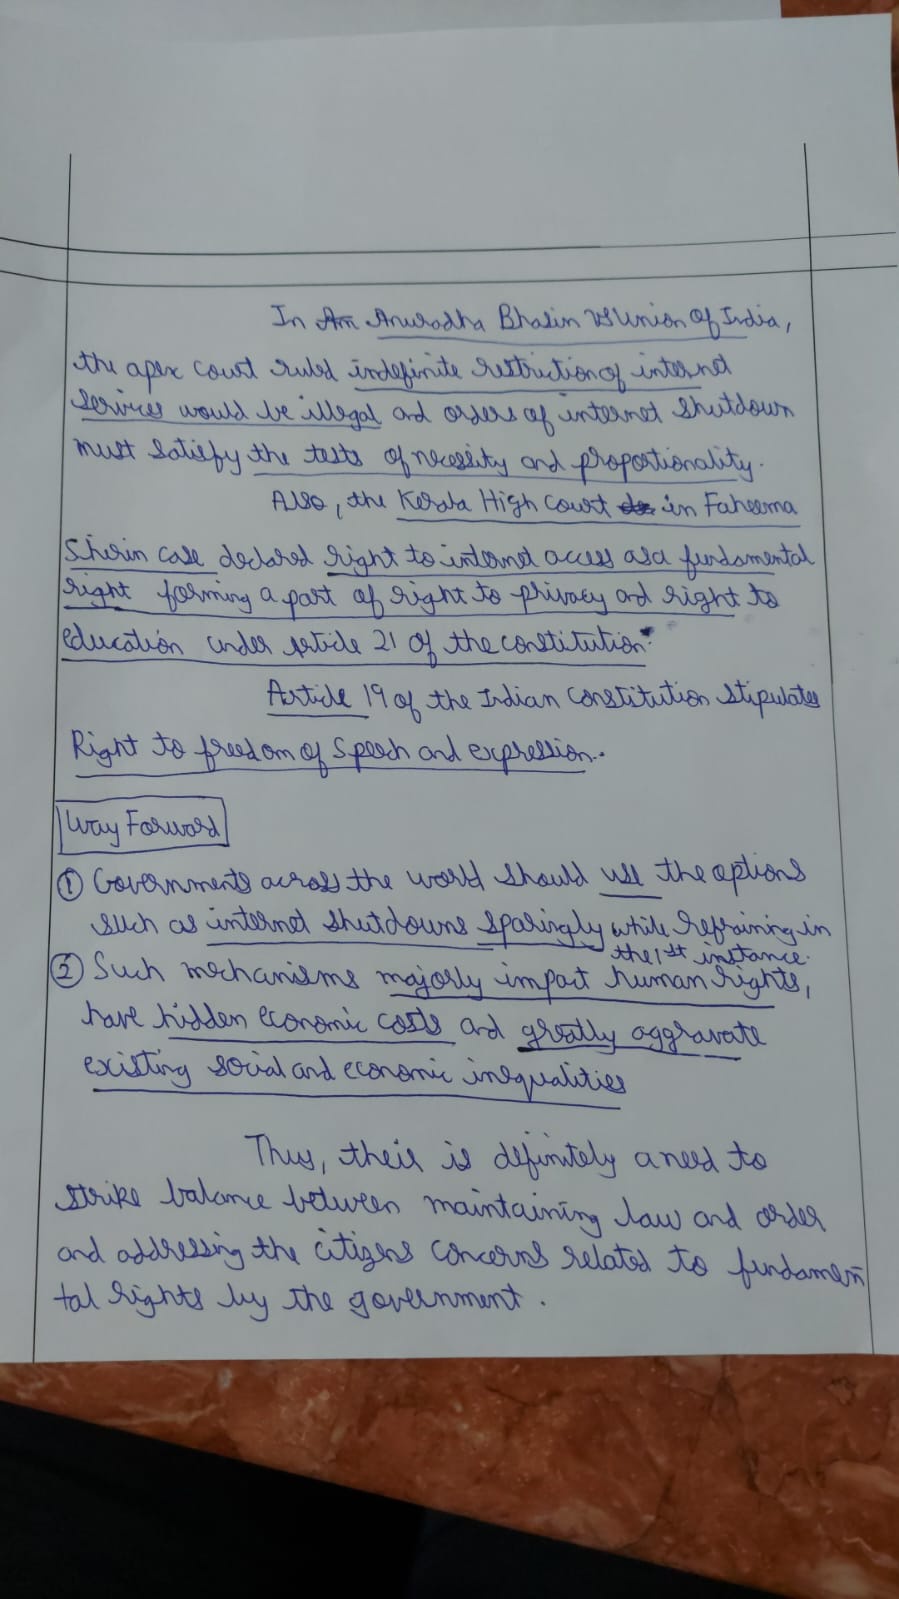 In Anuradha Bhasin VS Union Of India,
the apex court ruled indefinite restriction of internet
services would be illegal and orders of internet shutdown
must satisfy the tests of necessity and proportionality.
Also, the Kerala High Court in Faheema
Shirin case declared right to internet access as a fundamental
right forming a part of right to privacy and right to
education under Article 21 of the constitution.
Article 19 of the Indian Constitution stipulates
Right to freedom of speech and expression.
Way Forward
① Governments across the world should use the options
such as internet shutdowns sparingly while refraining in
the 1st instance.
② Such mechanisms majorly impact human rights,
have hidden economic costs and greatly aggravate
existing social and economic inequalities
Thus, their is definitely a need to
strike balance between maintaining law and order
and addressing the citizens concerns related to fundamen
tal rights by the government.